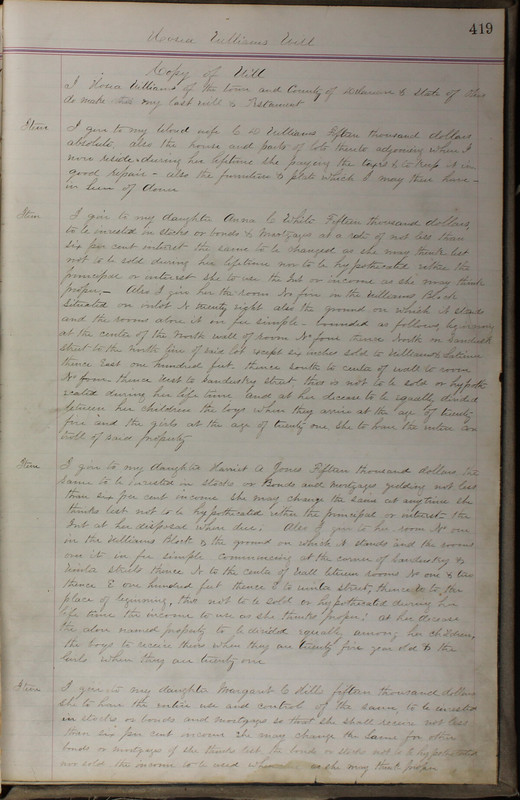 419
Hosea Williams Will
Copy of Will
I Hosea Williams of the town and County of Delaware & state of Ohio
do make this my last will & Testament
Item I give to my beloved wife C D Williams fifteen thousand dollars
absolute, also the house and parts of lots thereto adjoining where I
now reside during her lifetime she paying the taxes & to keep it in
good repair - also the furniture & plate which I may then have -
in lieu of dower
Item I give to my daughter Anna C White Fifteen thousand dollars,
to be invested in stocks or bonds & Mortgages at a rate of not less than
six per cent interest the same to be changed as she may think best
not to be sold during her lifetime nor to be hypothecated either the
principal or interest she to use the Int or income as she may think
proper - Also I give her the room No five in the Williams Block
situated on outlot No twenty eight also the ground on which it stands
and the rooms above it in fee simple - bounded as follows, beginning
at the center of the North wall of room No four thence North on Sandusky
street to the North line of said lot except six inches sold to Williams &
thence East one hundred feet thence south to center of wall to room
No four thence West to Sandusky street this is not to be sold or hypothe
cated during her life time and at her decease to be equally divided
between her children the boys when they arrive at the age of twenty
five and the girls at the age of twenty one she to have the entire con
troll of said property
Item I give to my daughter Harriet A Jones Fifteen thousand dollars, the
same to be invested in stocks or Bonds and mortgages yielding not less
than six per cent income she may change the same at anytime she
thinks best not to be hypothecated either the principal or interest the
Int at her disposal when due. Also I give to her room No one
in the Williams Block & the ground on which it stands and the rooms
over it in fee simple commencing at the corner of Sandusky &
Winter streets thence N to the center of Wall between rooms No one & two
thence E one hundred feet thence S to winter street, thence W to the
place of beginning, this not to be sold or hypothecated during her
life time the income to use as she thinks proper; at her decease
the above named property to be divided equally among her children,
the boys to receive theirs when they are twenty five year old & the
Girls when they are twenty one
Item I give to my daughter Margaret C Hills fifteen thousand dollars
she to have the entire use and controle of the same, to be invested
in stocks or bonds and mortgages so that she shall receive not less
than six per cent income She may change the same for other
bonds or mortgages if she thinks best the bonds or stocks not to be hypothecated
nor sold the income to be used when as she may think proper